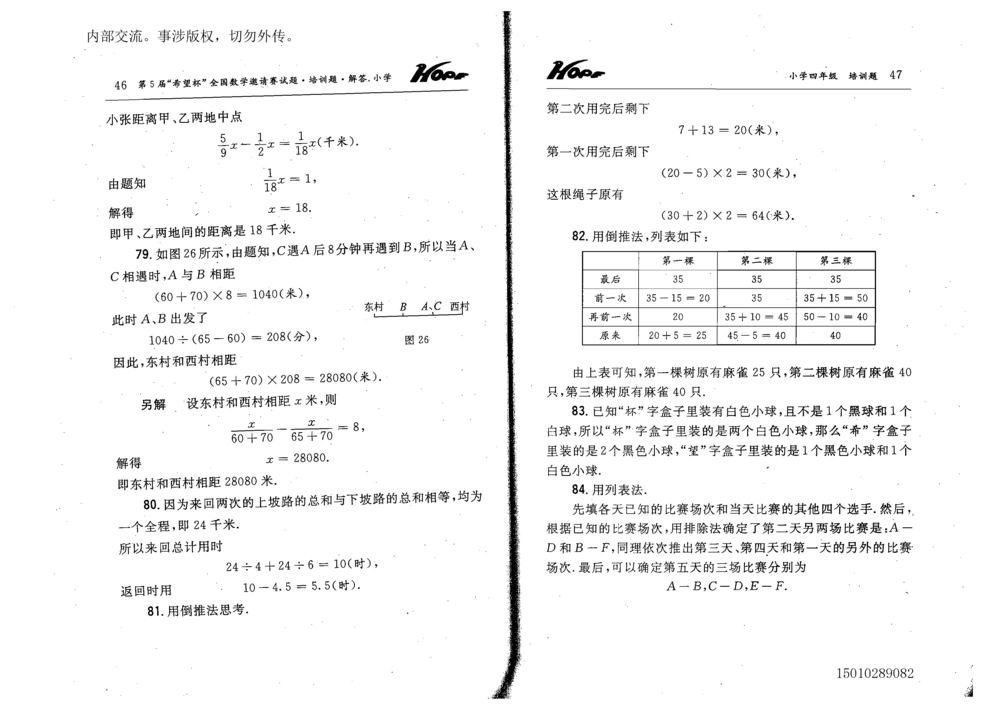 内部交流。事涉版权，切勿外传。
46 第5届“希望杯”全国数学邀请赛试题·培训题·解答.小学
HOPE
小张距离甲、乙两地中点
5/9x－1/2x＝1/18x(千米).
由题知 1/18x＝1,
解得 x＝18.
即甲、乙两地间的距离是18千米.
79. 如图26所示,由题知,C遇A后8分钟再遇到B,所以当A、
C相遇时,A与B相距
(60＋70)×8＝1040(米),
此时A、B出发了
东村 B A、C 西村
1040÷(65－60)＝208(分),
图26
因此,东村和西村相距
(65＋70)×208＝28080(米).
另解 设东村和西村相距x米,则
x/(60＋70)－x/(65＋70)＝8,
解得 x＝28080.
即东村和西村相距28080米.
80. 因为来回两次的上坡路的总和与下坡路的总和相等,均为
一个全程,即24千米.
所以来回总计用时
24÷4＋24÷6＝10(时),
返回时用 10－4.5＝5.5(时).
81. 用倒推法思考.
HOPE
小学四年级 培训题 47
第二次用完后剩下
7＋13＝20(米),
第一次用完后剩下
(20－5)×2＝30(米),
这根绳子原有
(30＋2)×2＝64(米).
82. 用倒推法,列表如下:
第一棵 第二棵 第三棵
最后 35 35 35
前一次 35－15＝20 35 35＋15＝50
再前一次 20 35＋10＝45 50－10＝40
原来 20＋5＝25 45－5＝40 40
由上表可知,第一棵树原有麻雀25只,第二棵树原有麻雀40
只,第三棵树原有麻雀40只.
83. 已知“杯”字盒子里装有白色小球,且不是1个黑球和1个
白球,所以“杯”字盒子里装的是两个白色小球,那么“希”字盒子
里装的是2个黑色小球,“望”字盒子里装的是1个黑色小球和1个
白色小球.
84. 用列表法.
先填各天已知的比赛场次和当天比赛的其他四个选手.然后,
根据已知的比赛场次,用排除法确定了第二天另两场比赛是:A－
D和B－F,同理依次推出第三天、第四天和第一天的另外的比赛
场次.最后,可以确定第五天的三场比赛分别为
A－B,C－D,E－F.
15010289082